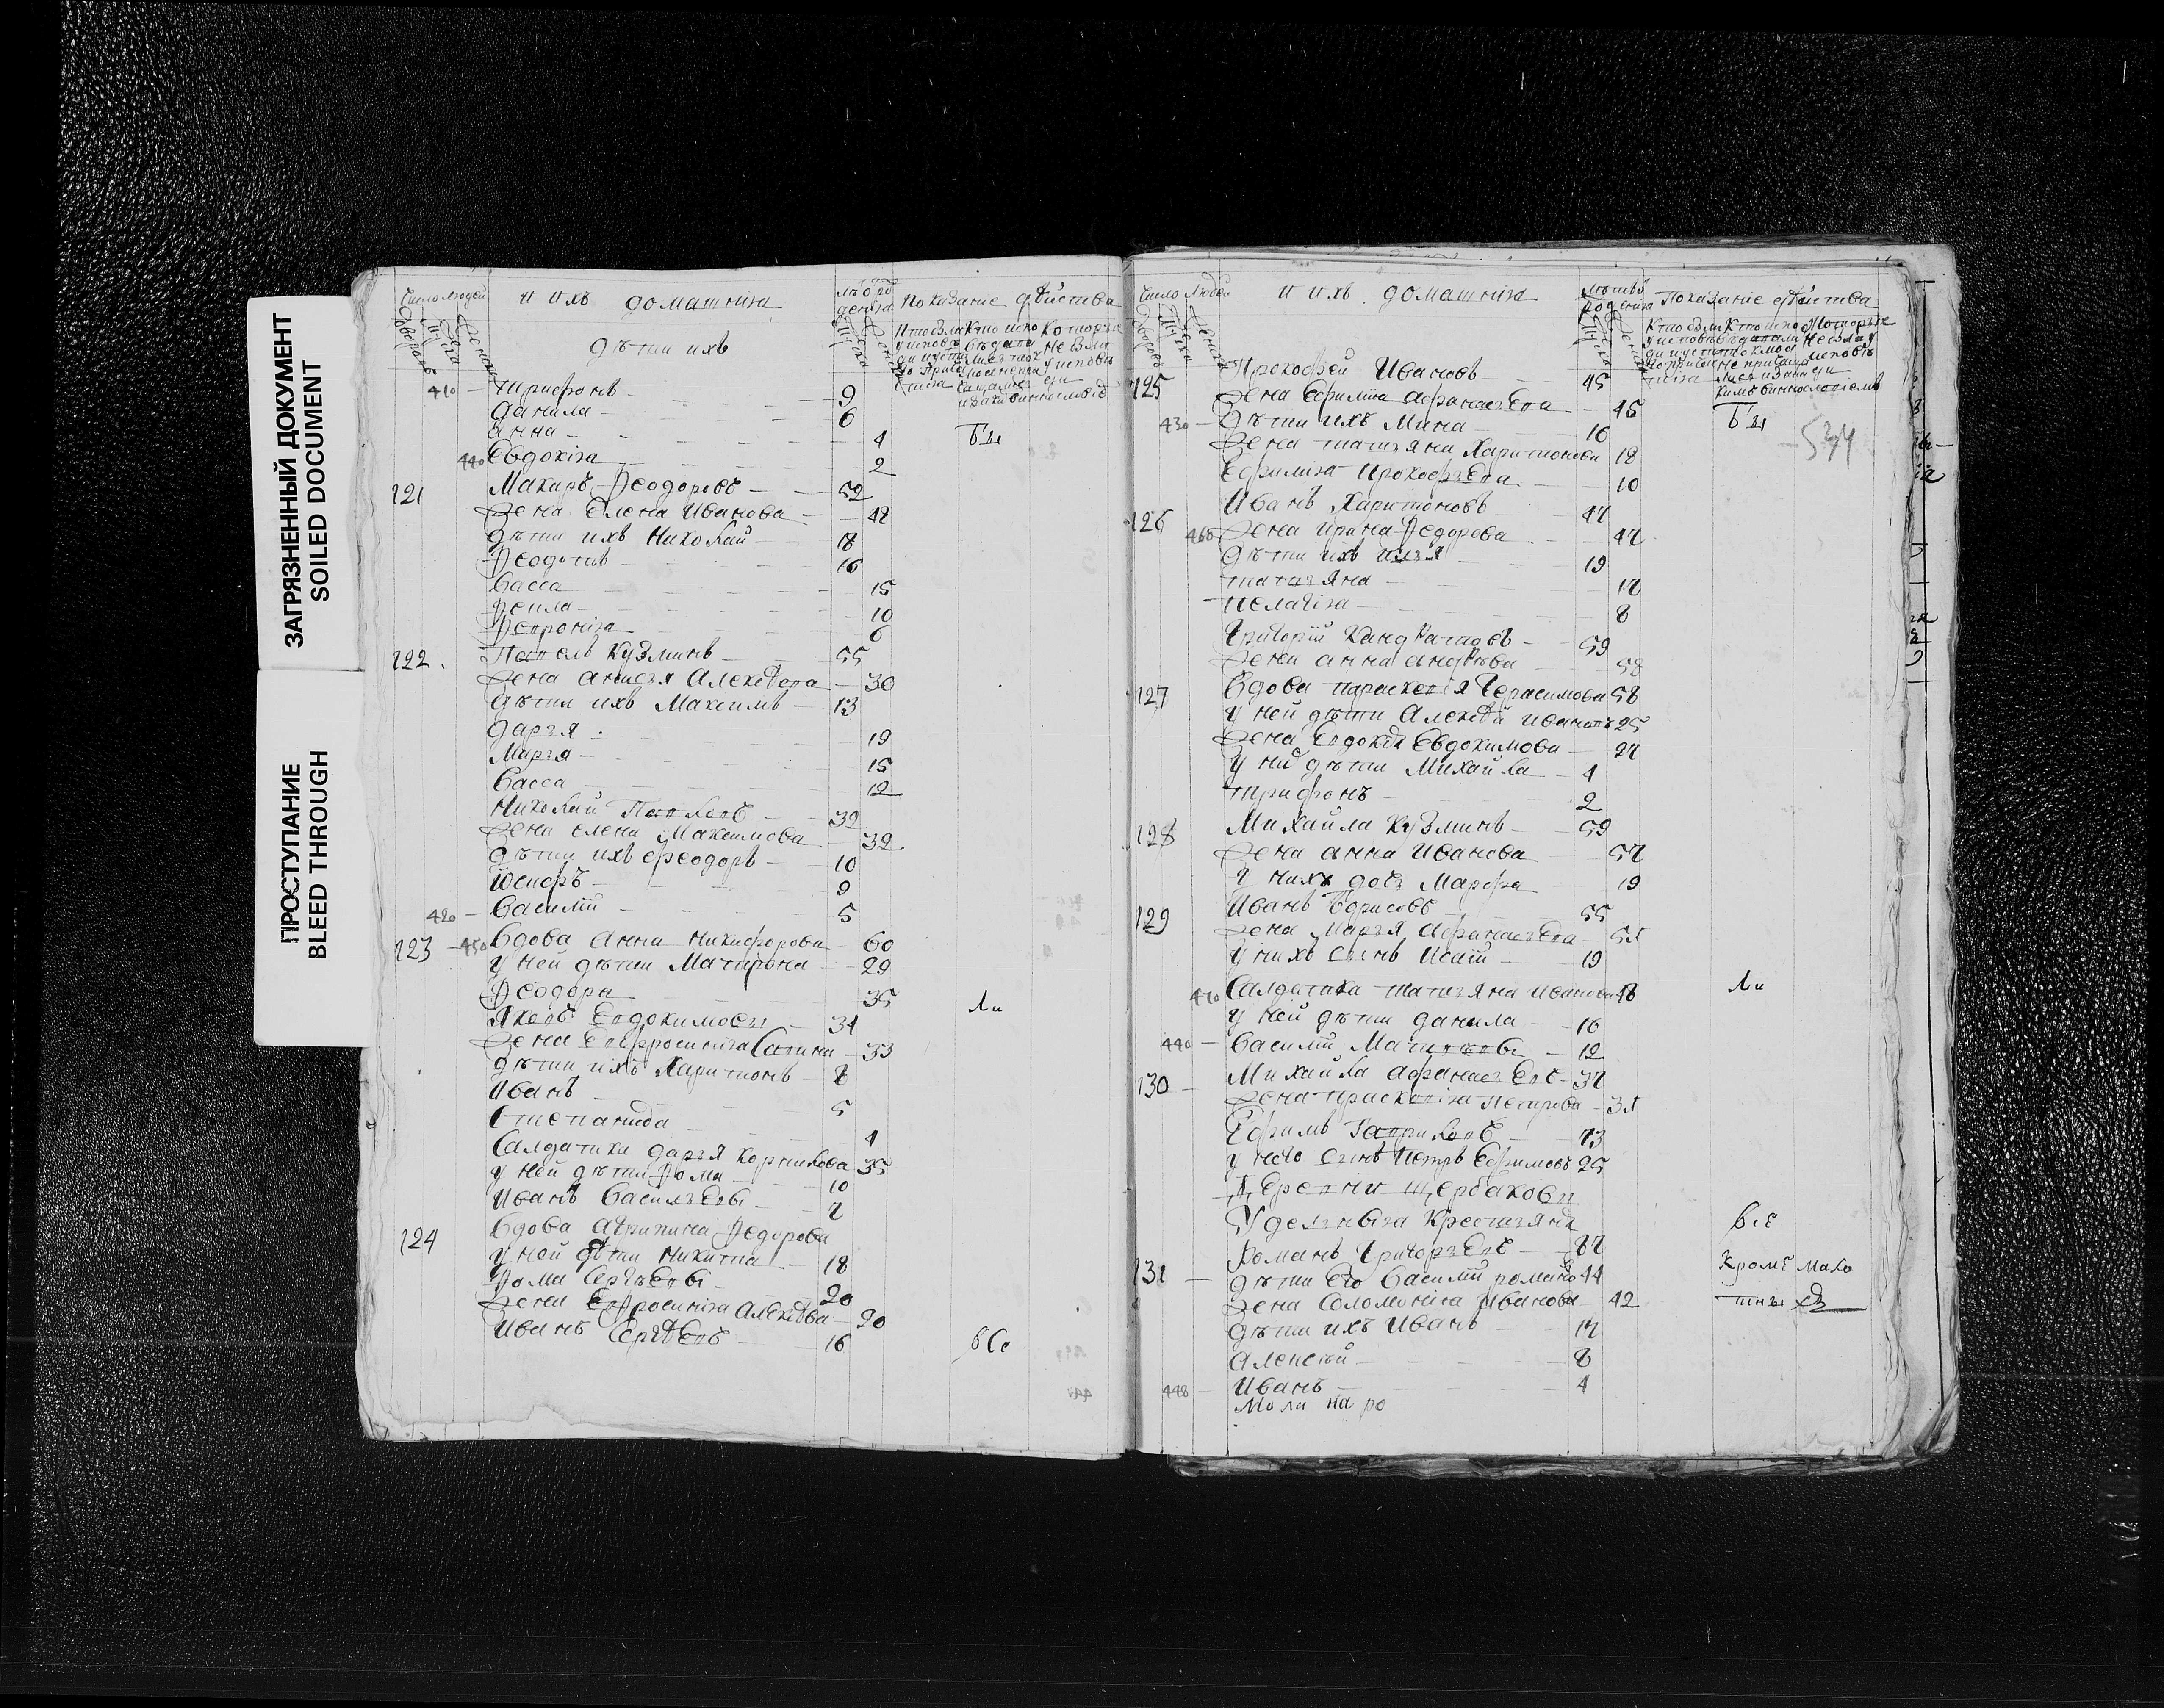 ЗАГРЯЗНЕННЫЙ ДОКУМЕНТ
SOILED DOCUMENT
ПРОСТУПАНИЕ
BLEED THROUGH
Число людей
и ихъ домашнiя
Показанiе дѣйства
дѣти ихъ
410 Трифонъ 9
Данила 6
Анна 4 Бы
440 Евдокiя 2
121 Макаръ Ѳеодоровъ 52
Жена Елена Иванова 42
дѣти ихъ Николай 18
Ѳеодотъ 16
Васса 15
Ѳекла 10
Ѳевронiя 6
122 Павелъ Кузминъ 55
Жена Анисья Алексѣева 30
дѣти ихъ Максимъ 13
Дарья 19
Марья 15
Васса 12
Николай Павловъ 32
Жена Елена Максимова 32
дѣти ихъ Ѳеодоръ 10
9
420 Василiй 5
123 450 Вдова Анна Никифорова 60
у ней дѣти Матрона 29
Ѳеодора 35 Ли
Яковъ Евдокимовъ 34
Жена Евфросинiя Савина 33
дѣти ихъ Харитонъ 8
Иванъ 5
Степанида 4
Салдатка Дарья Корнилова 35
у ней дѣти Ѳома 10
Иванъ Васильевы
124 Вдова Агрипина Ѳедорова
у ней дѣти Никита 18
Ѳома Сергѣевы 20
Жена Евфросинiя Алексѣева 20
Иванъ Сергѣевъ 16 Все
Число людей
и ихъ домашнiя
Показанiе дѣйства
Прокофей Ивановъ 45
125 Жена Ефимiя Афанасьева 46
430 дѣти ихъ Мина 16 Бы
534
Жена Татьяна Харитонова 18
Ефимiя Прокофьева 10
126 Иванъ Харитоновъ 47
460 Жена Ирина Ѳедорова 47
дѣти ихъ Илья 19
Татьяна 17
Пелагiя 8
Григорiй Кандратьевъ 59
Жена Анна Андрѣева 58
127 Вдова Параскевiя Герасимова 58
у ней дѣти Алексѣй Ивановъ 25
Жена Евдокiя Евдокимова 27
у ней дѣти Михайла 4
Трифонъ 2
128 Михайла Кузминъ 59
Жена Анна Иванова 57
у нихъ дочь Марфа 19
129 Иванъ Борисовъ 55
Жена Марья Афанасьева
у нихъ сынъ Исай 19
470 Салдатка Татьяна Иванова 48 Ли
у ней дѣти Данила 16
440 Василiй 12
130 Михайла Афанасьевъ 37
Жена Прасковiя Петрова
Ефимъ Гавриловъ 73
у него сынъ Петръ Ефимовъ 25
Деревни Щербаковы
Удельныя Крестьяня Все
Романъ Григорьевъ 87
131 дѣти его Василiй Романовъ 44 Кроме мало
Жена Соломонiя Иванова 42 тны
дѣти ихъ Иванъ 17
Алексѣй 8
448 Иванъ 4
Мола на ро